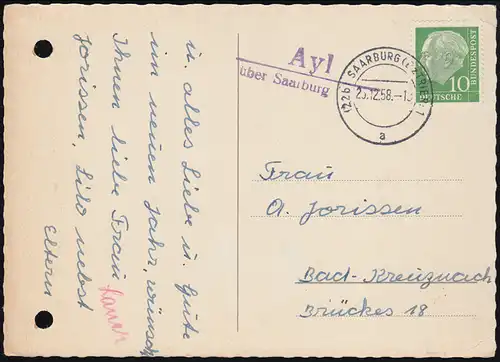 in, alles Liebe u. Gute
im neuen Jahr, wünsch
Ihnen liebe Frau
Jorissen, Lilo nebst
Eltern
Ayl
über Saarburg
(22b) SAARBURG (BZ TRIER) 1
29.12.58.-1
a
10
DEUTSCHE
BUNDESPOST
Frau
A. Jorissen
Bad-Kreuznach
Brückes 18